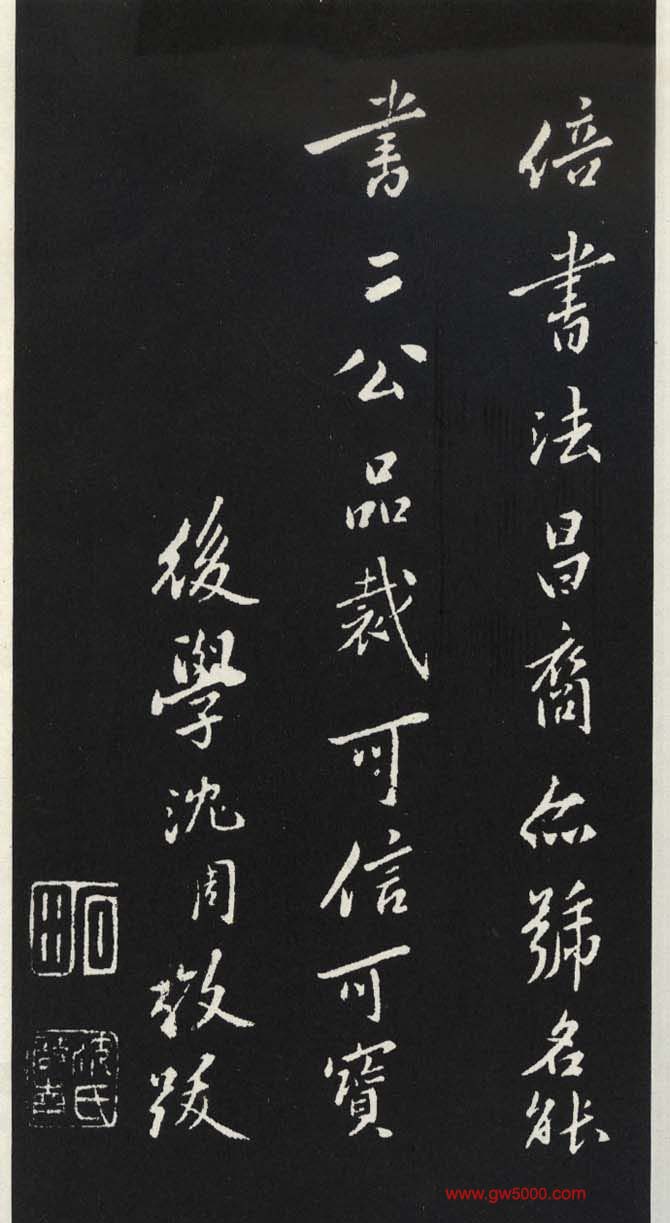 倍書法昌裔亦號名能
書二公品裁可信可寶
後學沈周敬跋
石田
www.gw5000.com